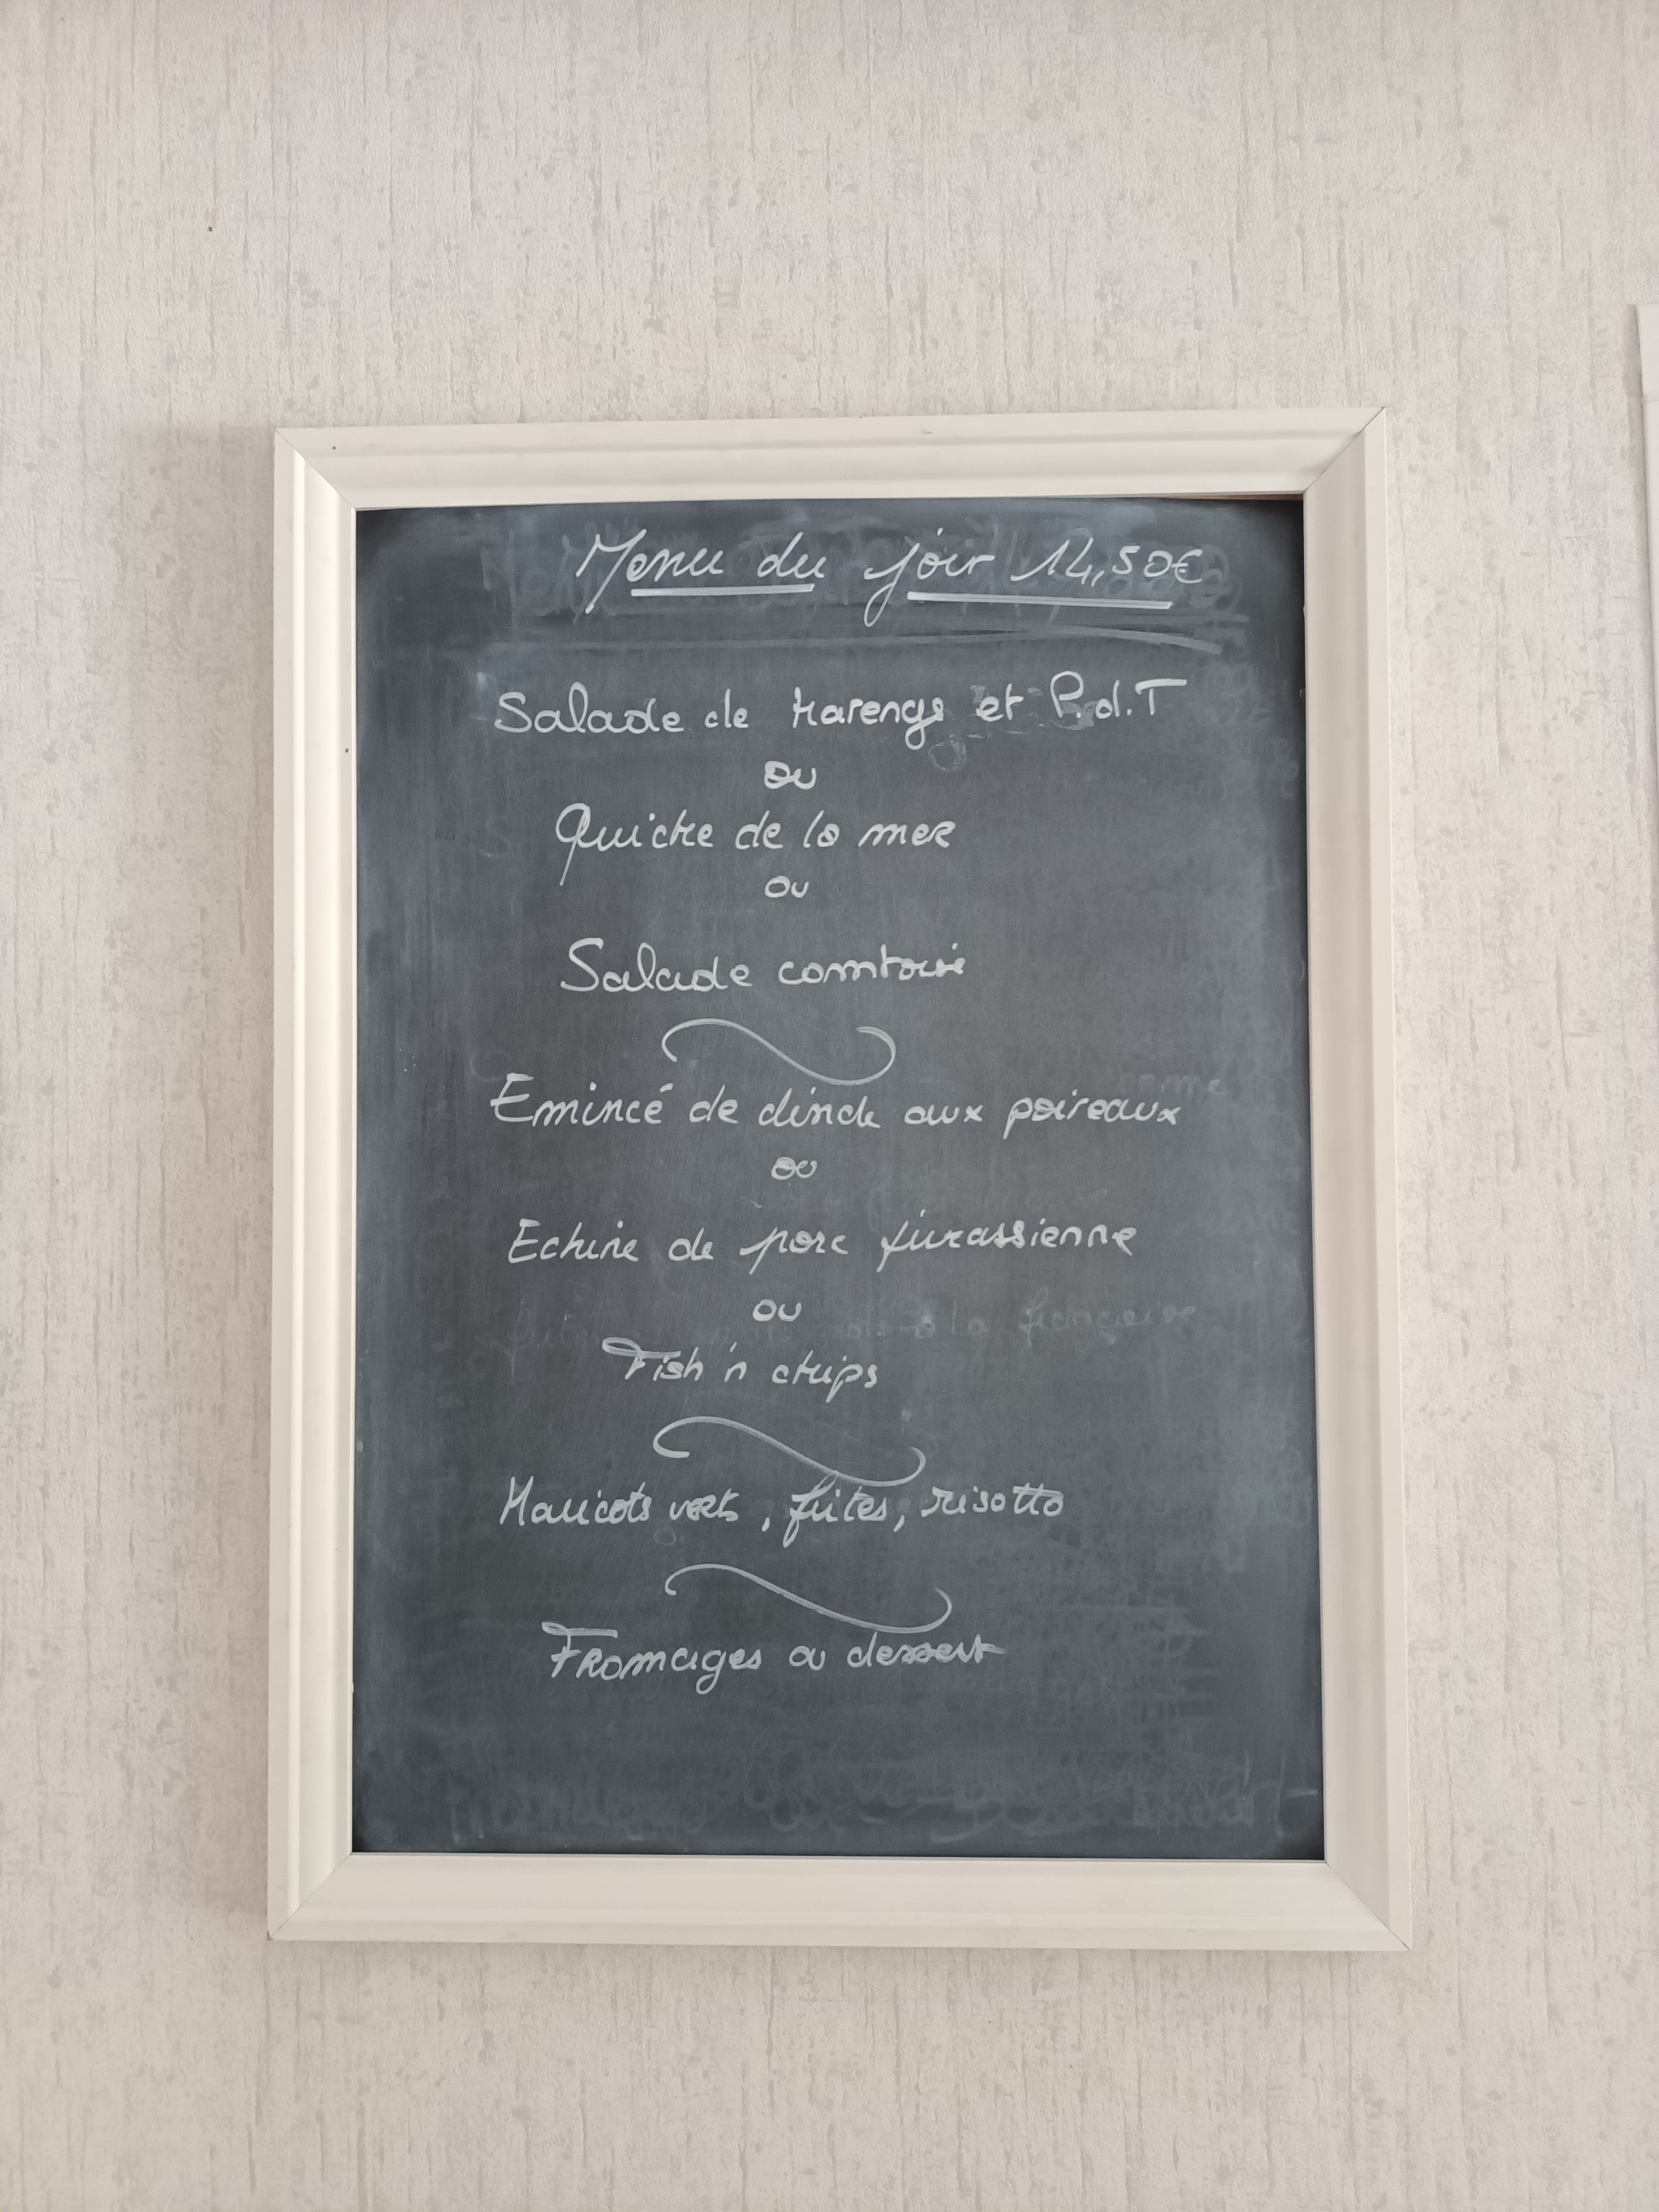 Menu du jour 14,50€
Salade de Harengs et P.d.T
ou
Quiche de la mer
ou
Salade comtoise
Emincé de dinde aux poireaux
ou
Echine de porc jurassienne
ou
Fish'n chips
Haricots verts, frites, risotto
Fromages ou dessert